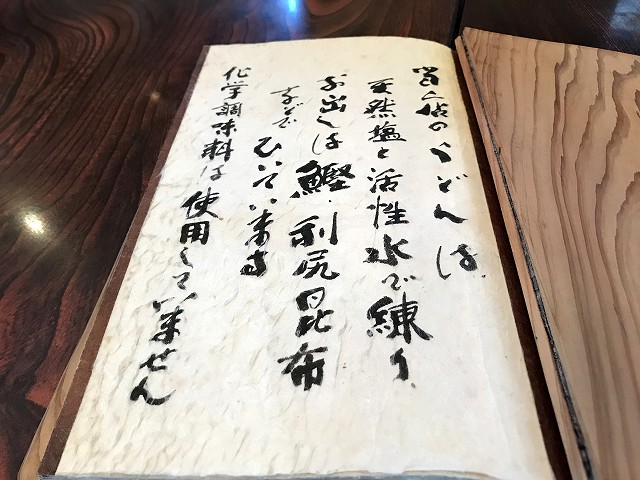 当店のうどんは、
天然塩と活性水で練り、
お出しは鰹、利尻昆布
などで
ひいています
化学調味料は使用していません